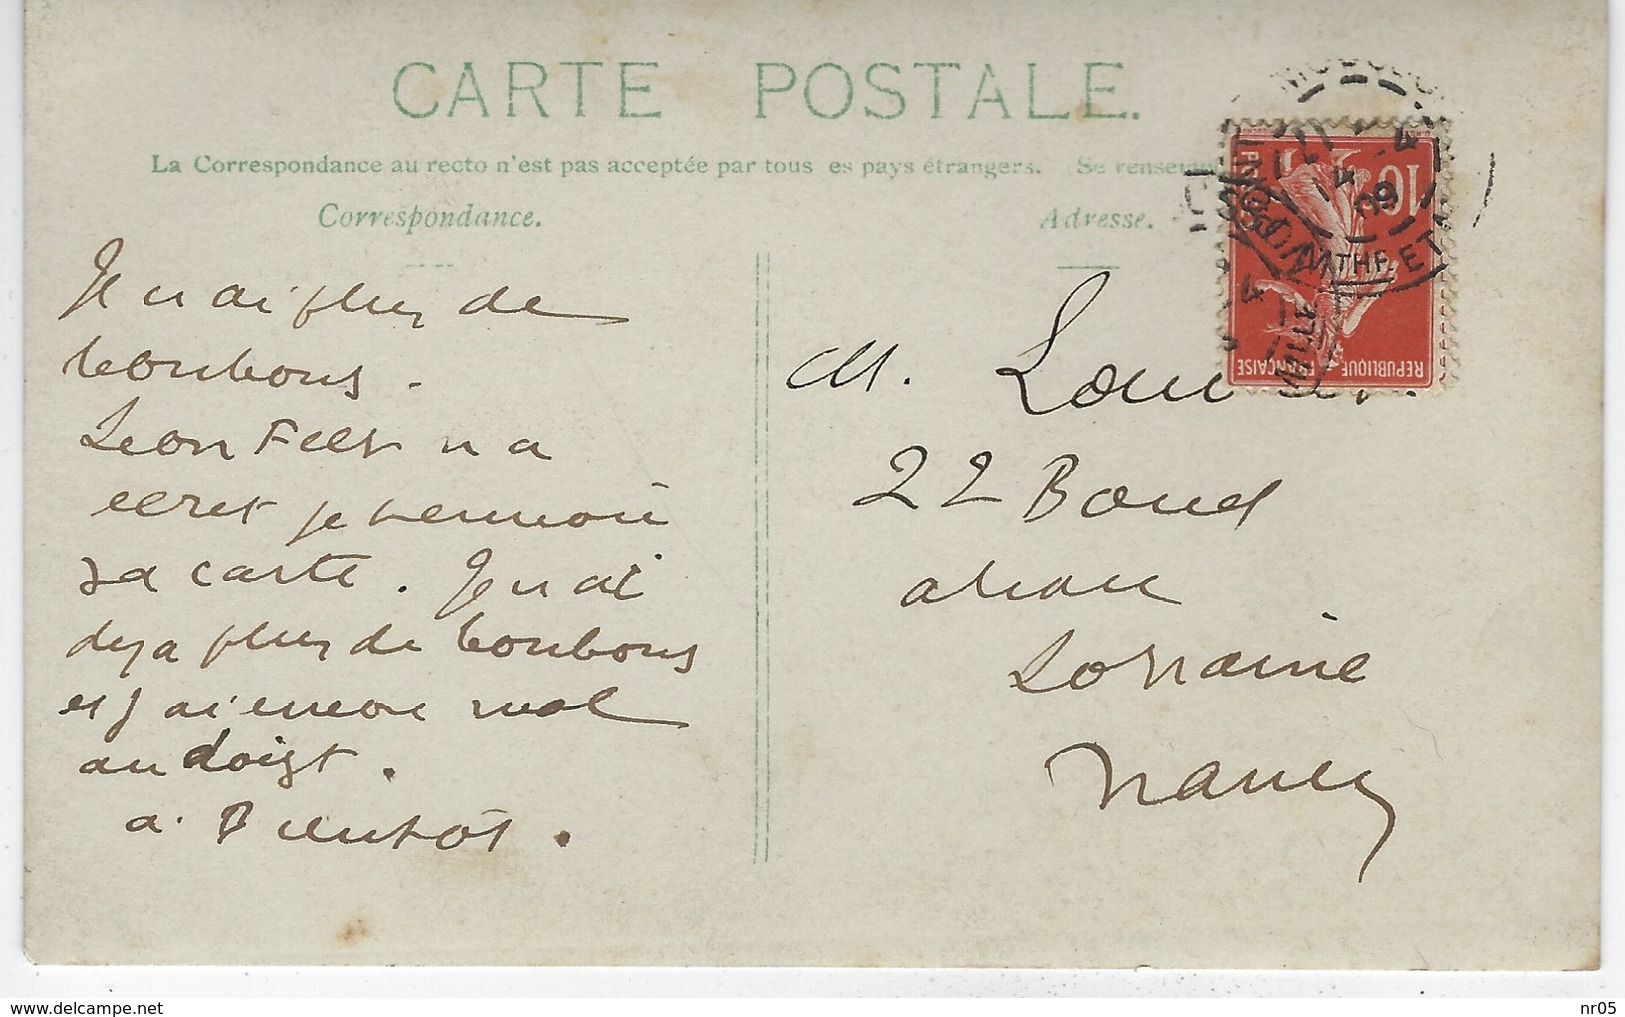 CARTE POSTALE.
La Correspondance au recto n'est pas acceptée par tous es pays étrangers. (Se renseign
Correspondance.
Adresse.
Je n ai plus de
bonbons.
Leon Feer n a
ecret je t envoie
sa carte. Je n ai
deja plus de bonbons
et j ai encore mal
au doigt.
a. Bientôt.
M. Lou
22 Boud
alsace
Lorraine
Nancy
10
REPUBLIQUE FRANÇAISE
delcampe.net
nr05